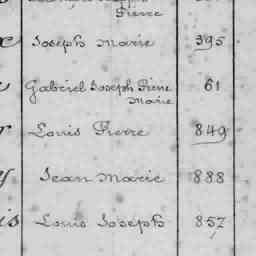 Pierre
Joseph Marie 395
Gabriel Joseph Pierre 61
Marie
Louis Pierre 849
Jean Marie 888
Louis Joseph 857